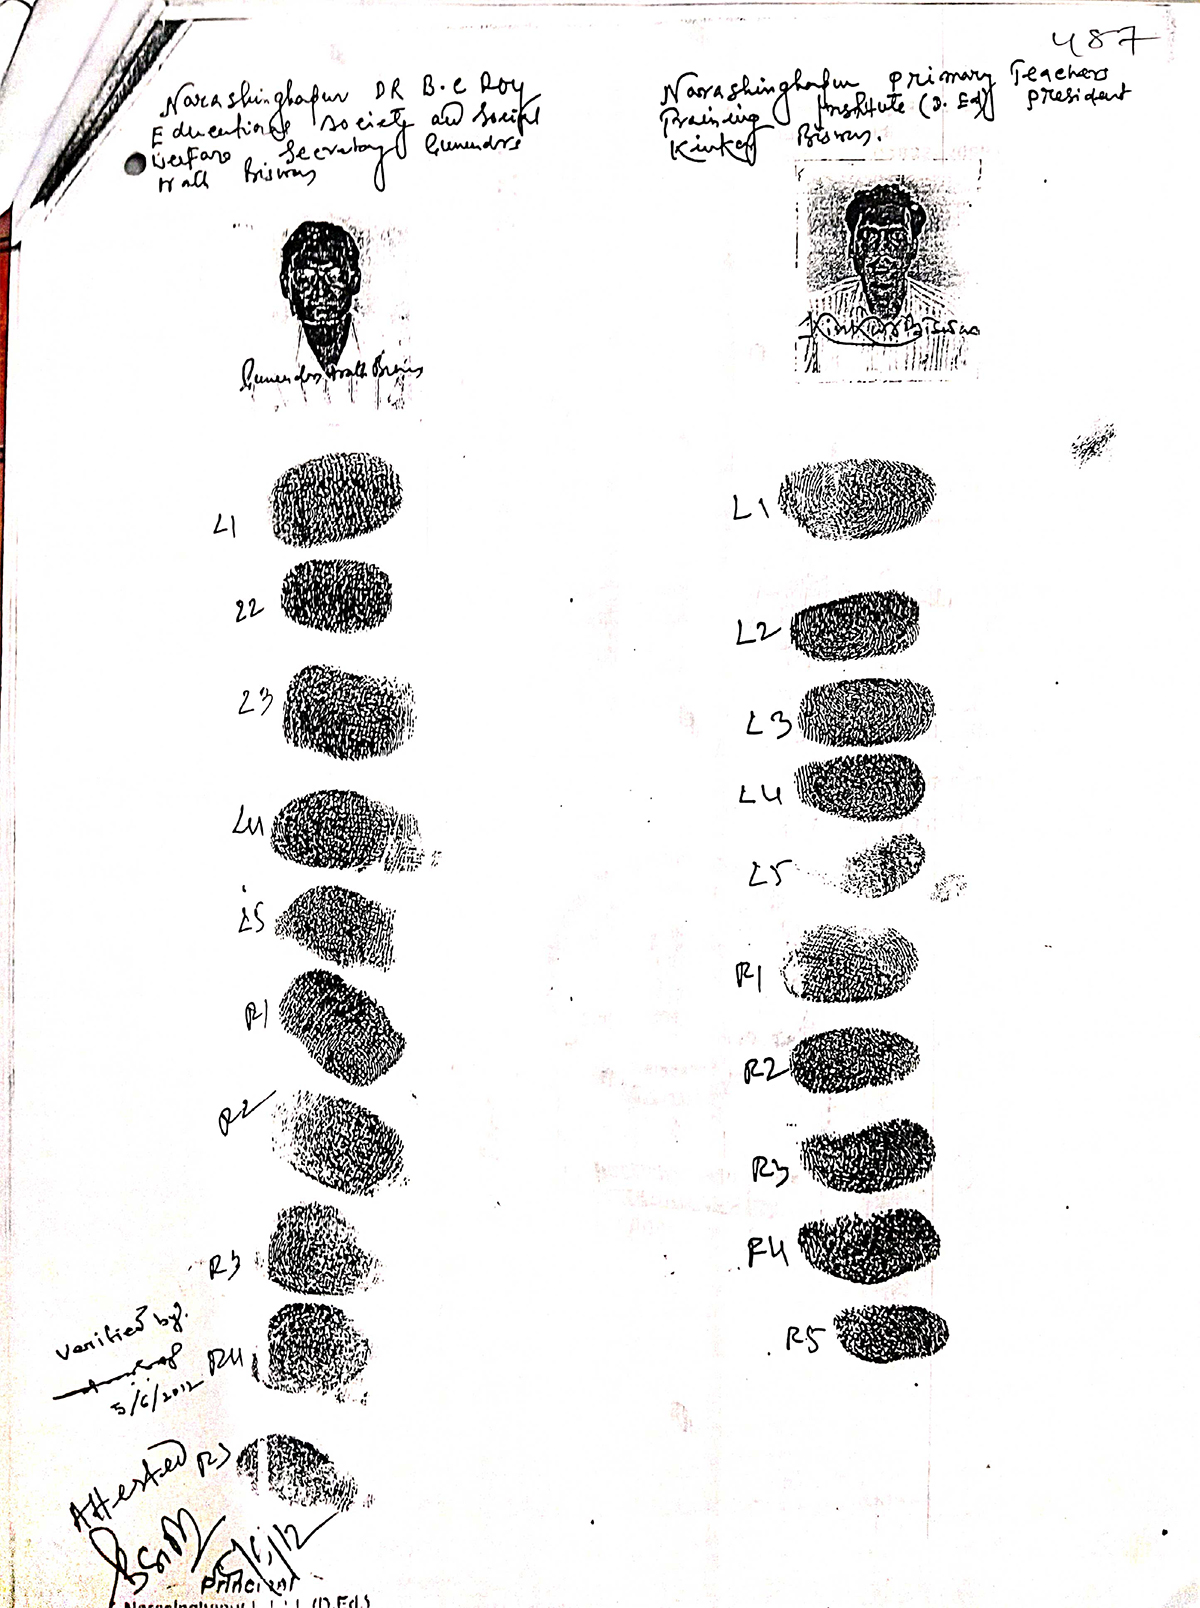 487
Narashinghapur DR B.C Roy
Educational Society and Social
Welfare Secretary Gunendra
Nath Biswas
Narashinghapur Primary Teachers
Training Institute (D. Ed) President
Kinkar Biswas.
Gunendra Nath Biswas
Kinkar Biswas
L1
L2
L3
L4
L5
R1
R2
R3
R4
R5
L1
L2
L3
L4
L5
R1
R2
R3
R4
R5
Verified by.
5/6/2012
Attested
5/6/12
Principal
(D.Ed.)